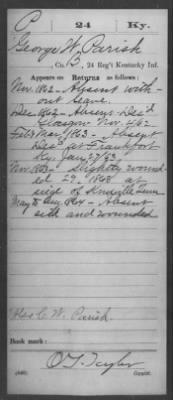 P 24 Ky.
George W. Parish
Co. B, 24 Reg't Kentucky Inf.
Appears on Returns as follows:
Nov. 1862 - Absent with-
out leave.
Dec. 1862 - Absent Des'd
Glasgow Nov. 1862
Feb & Mar 1863 - Absent
Des'd at Frankfort
Ky. Jany 27/63
Nov. 1863 - Slightly wound-
ed 29, 1863 at
siege of Knoxville Tenn
May & 1864 - Absent
sick and wounded
C. W. Parish.
Book mark:
O. T. Taylor
(546) Copyist.